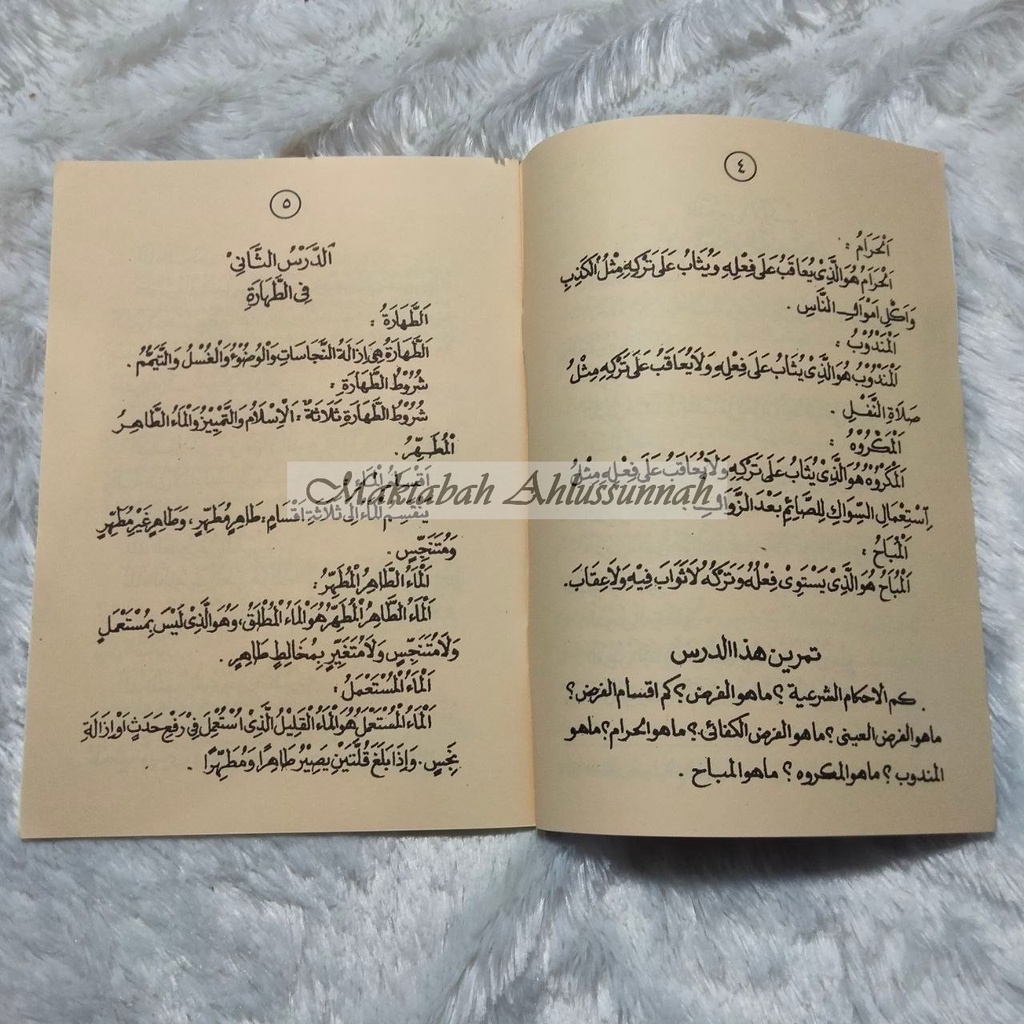 ٤
اَلْحَرَامُ :
اَلْحَرَامُ هُوَ الَّذِىْ يُعَاقَبُ عَلَى فِعْلِهِ وَيُثَابُ عَلَى تَرْكِهِ مِثْلُ الْكَذِبِ
وَاَكْلِ اَمْوَالِ النَّاسِ .
اَلْمَنْدُوْبُ :
اَلْمَنْدُوْبُ هُوَ الَّذِىْ يُثَابُ عَلَى فِعْلِهِ وَلَا يُعَاقَبُ عَلَى تَرْكِهِ مِثْلُ
صَلَاةِ النَّفْلِ .
اَلْمَكْرُوْهُ :
اَلْمَكْرُوْهُ هُوَ الَّذِىْ يُثَابُ عَلَى تَرْكِهِ وَلَا يُعَاقَبُ عَلَى فِعْلِهِ مِثْلُ
اِسْتِعْمَالِ السِّوَاكِ لِلصَّائِمِ بَعْدَ الزَّوَالِ .
اَلْمُبَاحُ :
اَلْمُبَاحُ هُوَ الَّذِىْ يَسْتَوِىْ فِعْلُهُ وَتَرْكُهُ لَا ثَوَابَ فِيْهِ وَلَا عِقَابَ.
تمرين هذا الدرس
كم الاحكام الشرعية ؟ ما هو الفرض ؟ كم اقسام الفرض ؟
ماهو الفرض العينى ؟ ما هو الفرض الكفائى ؟ ما هو الحرام ؟ ماهو
المندوب ؟ ما هو المكروه ؟ ما هو المباح .
٥
اَلدَّرْسُ الثَّانِىْ
فِى الطَّهَارَةِ
اَلطَّهَارَةُ :
اَلطَّهَارَةُ هِىَ اِزَالَةُ النَّجَاسَاتِ وَالْوُضُوْءُ وَالْغُسْلُ وَالتَّيَمُّمُ .
شُرُوْطُ الطَّهَارَةِ :
شُرُوْطُ الطَّهَارَةِ ثَلَاثَةٌ : اَلْاِسْلَامُ وَالتَّمْيِيْزُ وَالْمَاءُ الطَّاهِرُ
الْمُطَهِّرُ.
اَقْسَامُ الْمَاءِ
يَنْقَسِمُ الْمَاءُ اِلَى ثَلَاثَةِ اَقْسَامٍ : طَاهِرٍ مُطَهِّرٍ ، وَطَاهِرٍ غَيْرِ مُطَهِّرٍ
وَمُتَنَجِّسٍ .
اَلْمَاءُ الطَّاهِرُ الْمُطَهِّرُ :
اَلْمَاءُ الطَّاهِرُ الْمُطَهِّرُ هُوَ الْمَاءُ الْمُطْلَقُ ، وَهُوَ الَّذِىْ لَيْسَ بِمُسْتَعْمَلٍ
وَلَا مُتَنَجِّسٍ وَلَا مُتَغَيِّرٍ بِمُخَالِطٍ طَاهِرٍ .
اَلْمَاءُ الْمُسْتَعْمَلُ :
اَلْمَاءُ الْمُسْتَعْمَلُ هُوَ الْمَاءُ الْقَلِيْلُ الَّذِىْ اُسْتُعْمِلَ فِىْ رَفْعِ حَدَثٍ اَوْ اِزَالَةِ
نَجِسٍ . وَاِذَا بَلَغَ قُلَّتَيْنِ يَصِيْرُ طَاهِرًا وَمُطَهِّرًا .
Maktabah Ahlussunnah